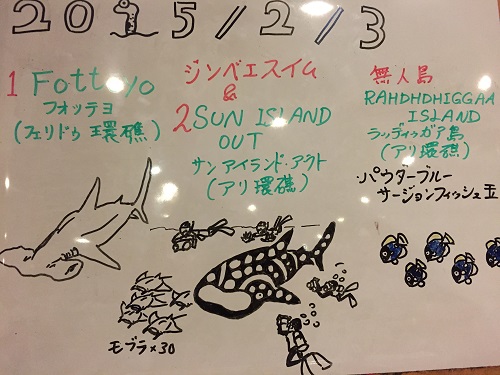 2015/2/3
1 Fotteyo
フォッテヨ
(フェリドゥ環礁)
ジンベエスイム
&
2 SUN ISLAND
OUT
サンアイランド・アウト
(アリ環礁)
無人島
RAHDHDHIGGAA
ISLAND
ラッディッガア島
(アリ環礁)
・パウダーブルー
サージョンフィッシュ玉
モブラ×30